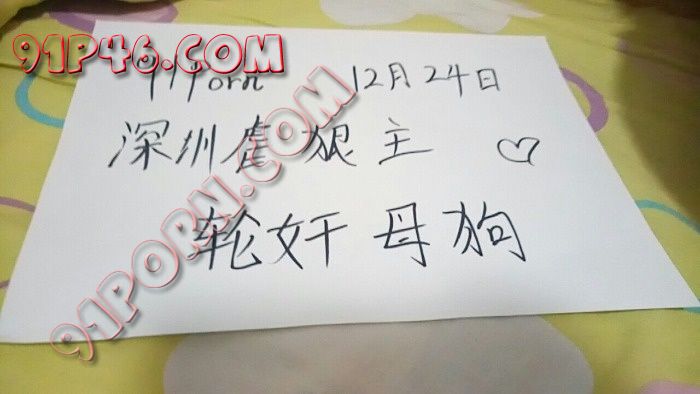 91P46.COM
91Porn 12月24日
深圳
主
轮奸母狗
91PORN.COM